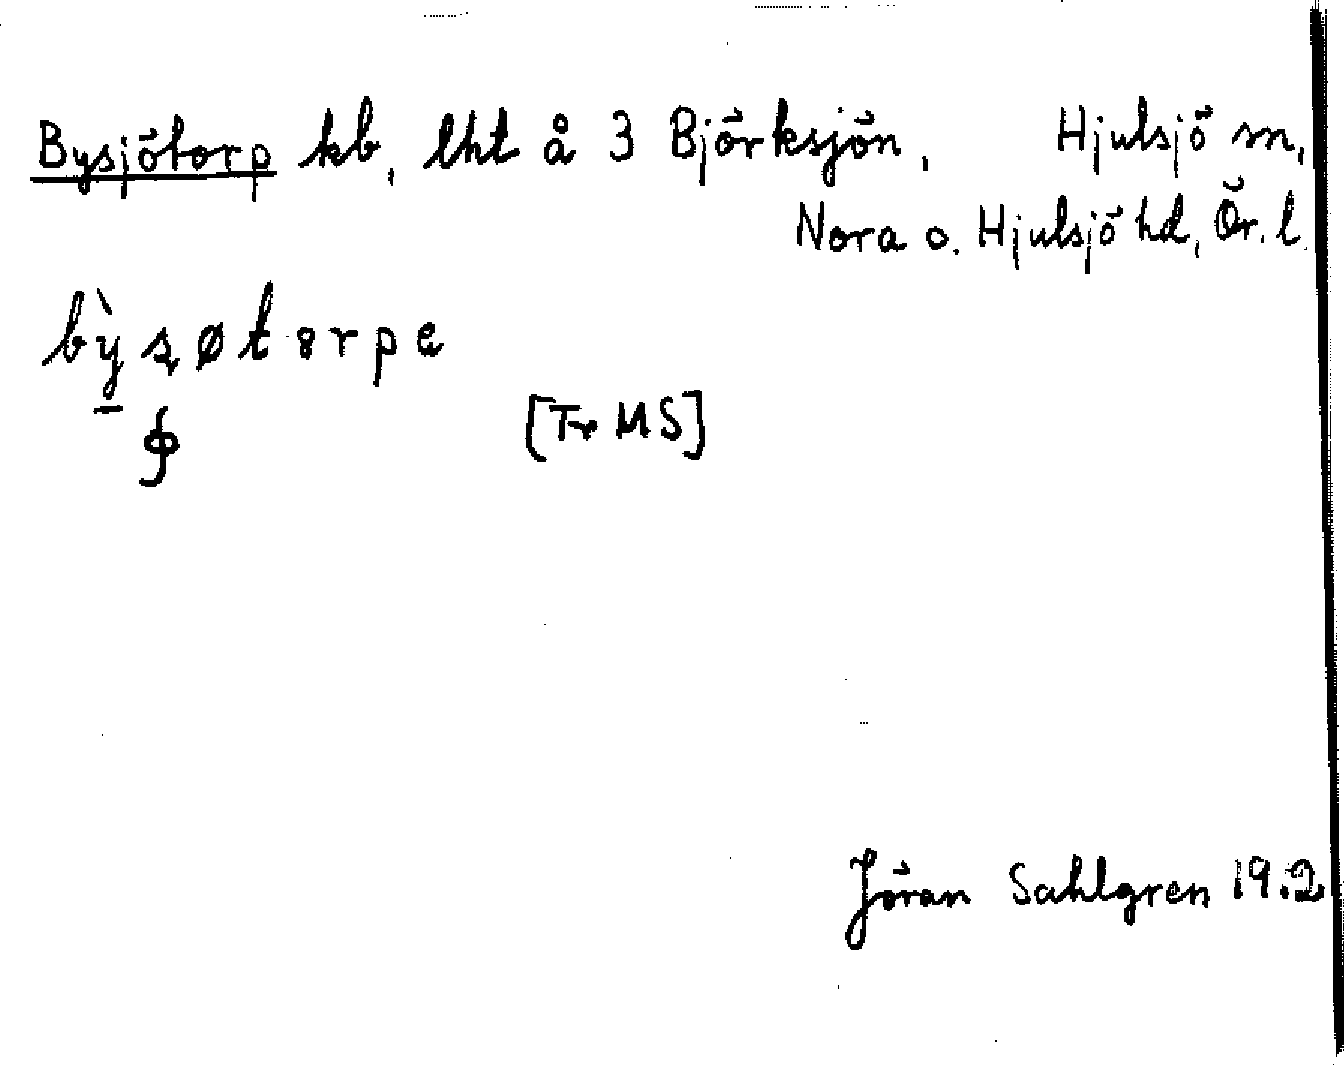 Bysjötorp kb, lht å 3 Björksjön, Hjulsjö sn,
Nora o. Hjulsjö hd, Ör. l.
[Tr MS]
Jöran Sahlgren 19.2